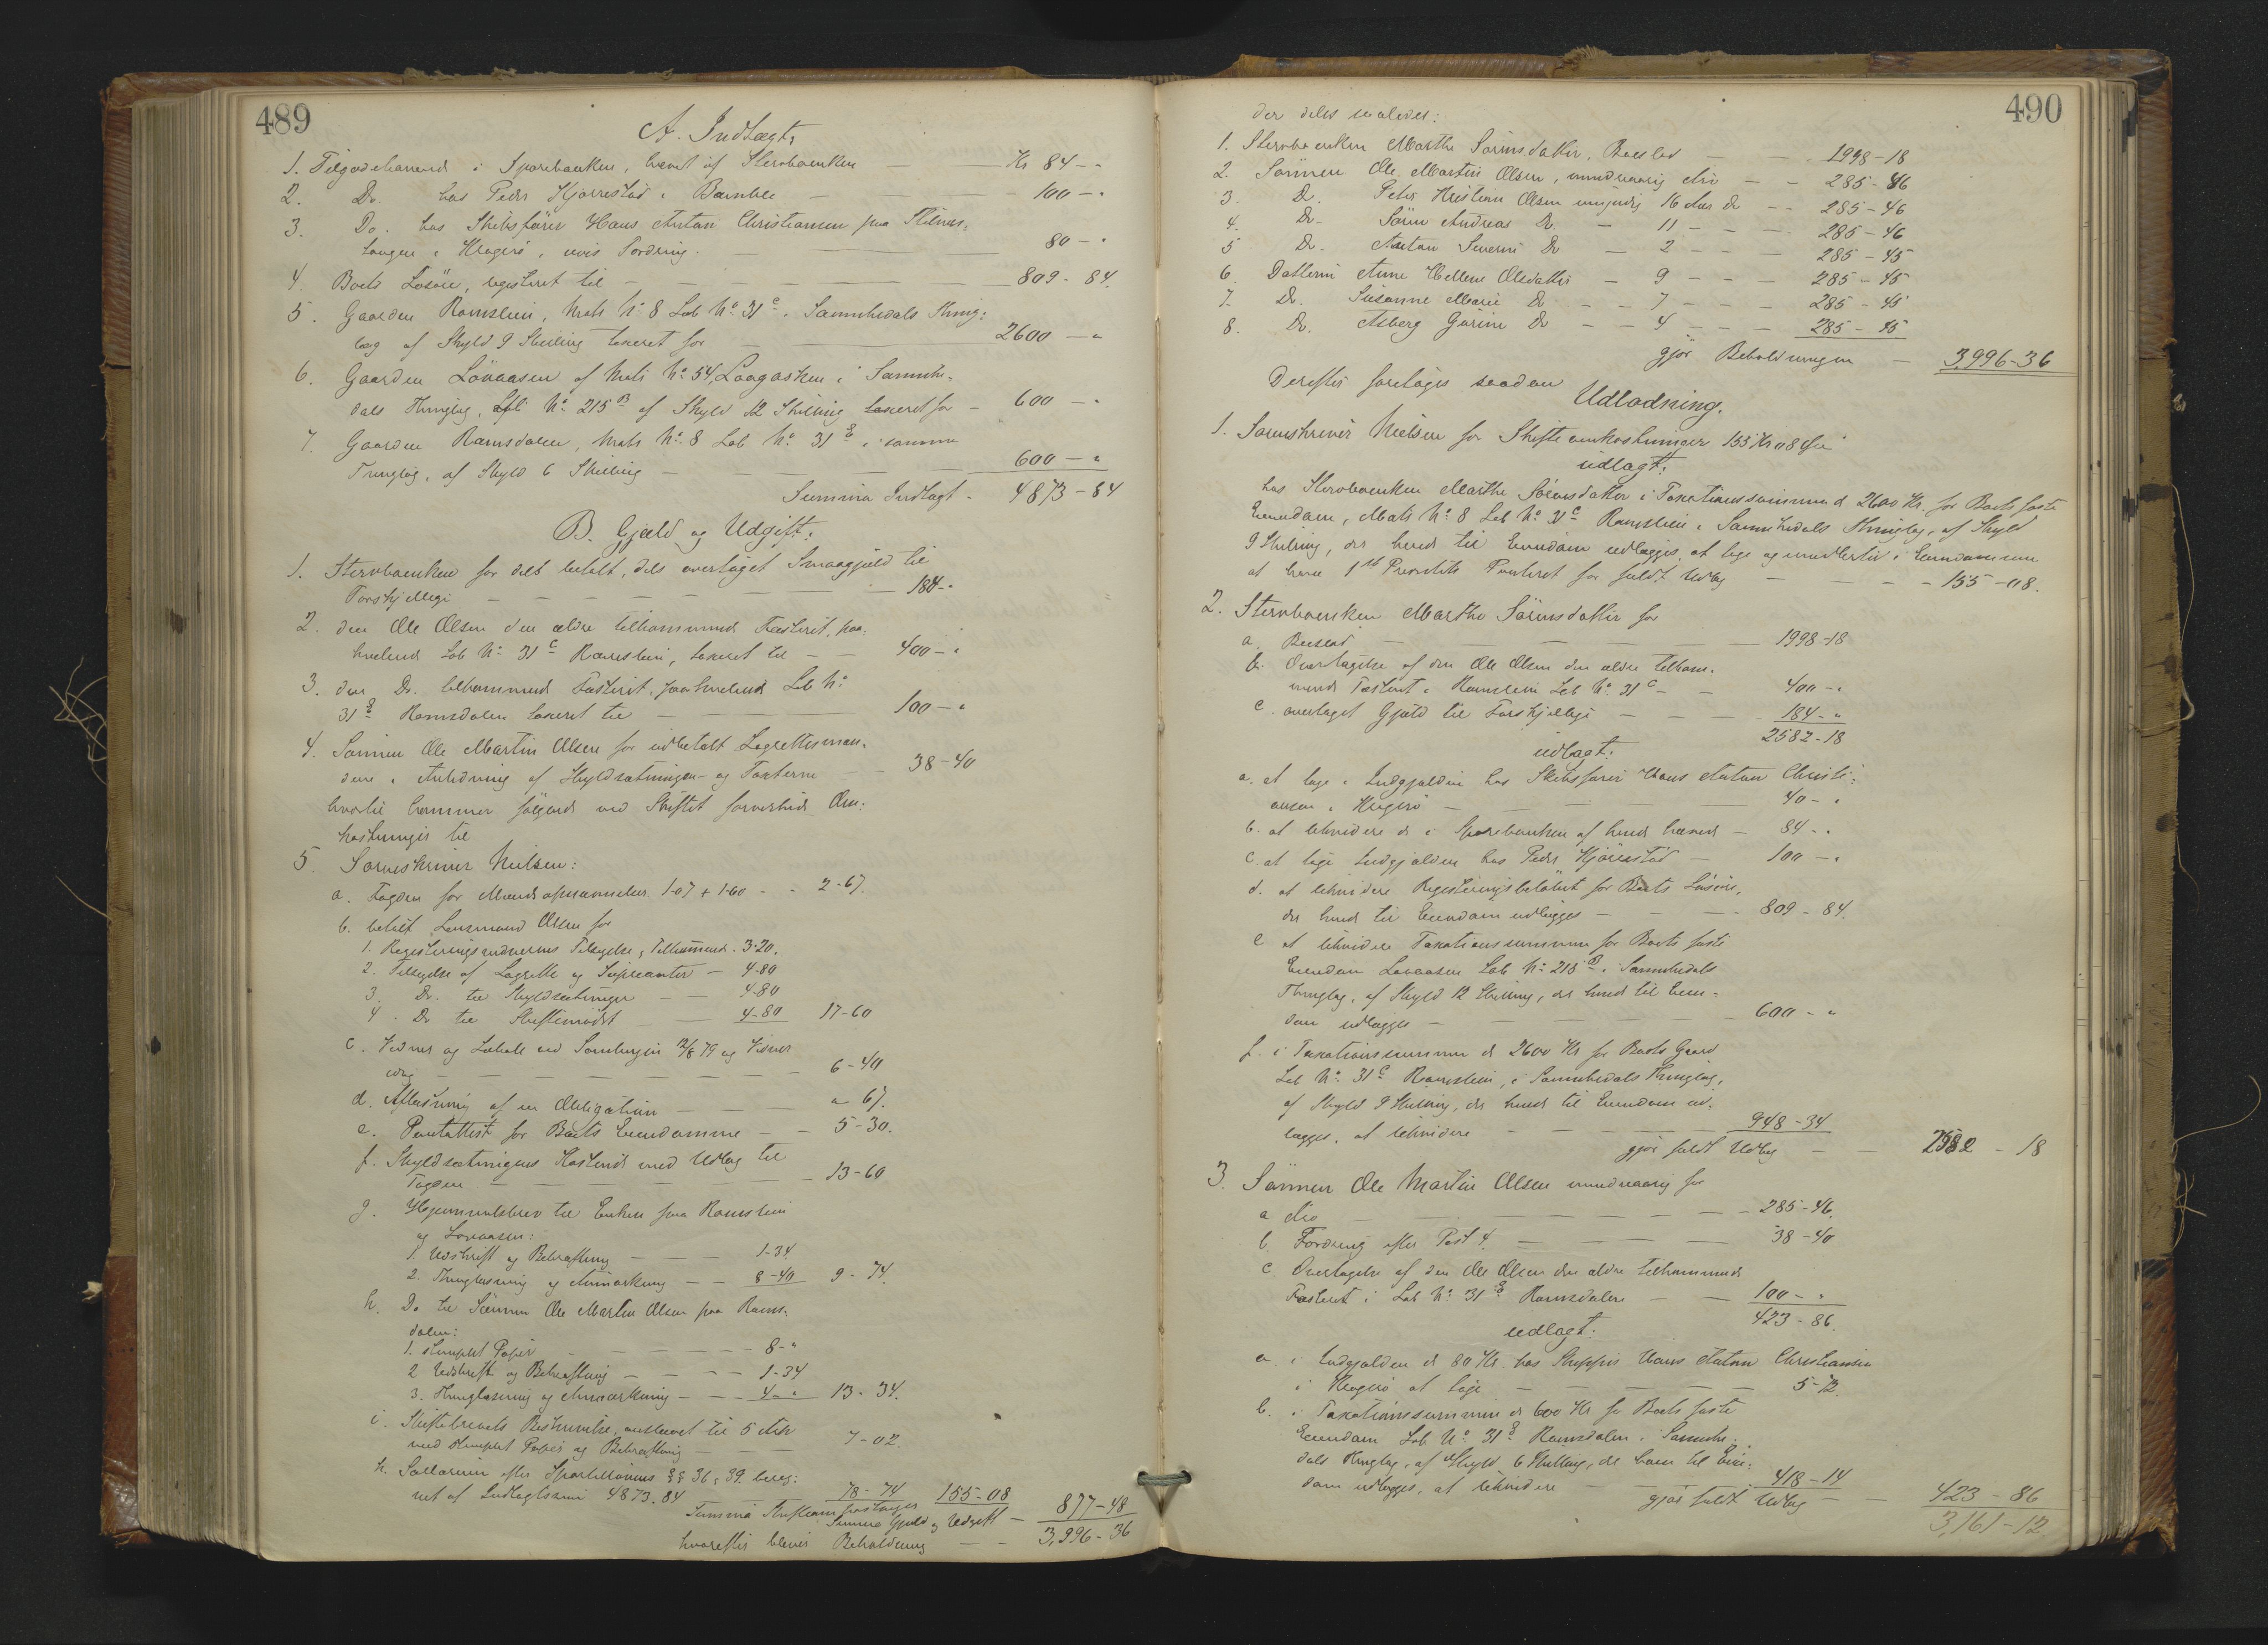 489
A. Indtægt:
1. Tilgodehavende i Sparebanken, hævet af Stervboenken — Kr 84 - "
2. Do. hos Peder Kjørrestad i Bamble — 100 - "
3. Do. hos Skibsfører Hans Anton Christiansen paa
i Kragerø, uvis Fordring. — 80 - "
4. Boets Løsøre, registeret til — 809 - 84.
5. Gaarden Ramslien, Matr No 8 Løb No 31 c i Sannikedals Thing-
lag af Skyld 9 Skilling taxeret for — 2600 - "
6. Gaarden Lövaasen af Matr No 54, i Sannike-
dals Thinglag, Løb No 215 B af Skyld 12 Skilling taxeret for - 600 - "
7. Gaarden Ramsdalen, Matr No 8 Løb No 31 E i samme
Thinglag, af Skyld 6 Skilling — 600 - "
Summa Indtægt - 4873 - 84
B. Gjæld og Udgift:
1. Stervboenken for dels betalt, dels overtaget Smaagjæld til
Forskjellige — 184 - "
2. den Ole Olsen den ældre tilkommende Fæsteret, paa-
hvilende Løb No 31 C Ramslien, taxeret til — 400 - "
3. den Do. tilkommende Fæsteret, paahvilende Løb No
31 E Ramsdalen taxeret til — 100 - "
4. Sønnen Ole Martin Olsen for udbetalt Lagrettesmæn-
dene i Anledning af Skyldsætningen og Taxterne — 38 - 40
hvortil kommer følgende ved Skiftet forvoldte Om-
kostninger til
5. Sorenskriver Nielsen:
a. Tagden for Mænds opnævnelser 1-07 + 1-60 - - 2 - 67.
b. betalt Lensmand Olsen for
1. Registeringsvidnernes Tilsigelse, Tilkommende. 3-20.
2. Tilsigelse af Lagrette og Supleanter - 4-80
3. Do. til Skyldsætningen — 4-80
4. Do til Skiftemødet — 4-80 17-60
c. Vidner og Lokale ved Samlingen 12/8 79 og Vidner
idag — 6 - 40
d. Aflæsning af en Obligation — " 67.
e. Pantattest for Boets Eiendomme — 5 - 30.
f. Skyldsætningens Kostende med Udlæg til
Tagden — 13-60
g. Hjemmelsbrev til Enken paa Ramslien
og Lövaasen:
1. Udskrift og Bekræftning — 1-34
2. Thinglæsning og Anmærkning — 8-40 9 - 74.
h. Do til Sønnen Ole Martin Olsen paa Rams-
dalen:
1. stemplet Papir — 8 - "
2 Udskrift og Bekræftning — 1-34
3. Thinglæsning og Anmærkning — 4 - " 13 - 34.
i. Skiftebrevets Beskrivelse, anslaaet til 5 Ark
med stemplet Papir og Bekræftning — 7 - 02.
k. Sallarium efter Sportellovens §§ 36, 39. bereg-
net af Indtægtssum 4873.84 78 - 74 155-08
Summa Skifteomkostninger
Summa Gjæld og Udgift — 877-48
hvorefter bliver Beholdning — 3,996 - 36
490
der deles saaledes:
1. Stervboenken Marthe Sørensdatter, Boeslod — 1998-18
2. Sønnen Ole Martin Olsen, myndig Arv — 285 - 46
3. Do. Peder Kristian Olsen umyndig 16 Aar Do — 285 - 46
4. Do- Søren Andreas Do. - 11 - — 285 - 46
5 Do- Anton Severin Do - 2 - — 285 - 45
6. Datteren Anne Hellene Olsdatter - 9 - — 285 - 45
7. Do. Susanne Marie Do - 7 - — 285 - 45
8. Do. Asberg Gurine Do - 4 - — 285 - 45
gjør Beholdningen — 3,996-36
Derefter foretoges saadan
Udlodning.
1. Sorenskriver Nielsen for Skifteomkostninger 155 Kr 08 Øre
udlagt:
hos Stervboenken Marthe Sørensdatter i Taxationssummen d 2600 Kr. for Boets faste
Eiendom, Matr No 8 Løb No 31 C Ramslien i Sannikedals Thinglag, af Skyld
9 Skilling, der hende til Eiendom udlægges, at tage og imidlertid i Eiendommen
at have 1ste Prioritets Panteret for fuldt Udlæg — 155-08.
2. Stervboenken Marthe Sørensdatter for
a. Boeslod — 1998-18
b. Overtagelse af den Ole Olsen den ældre tilkom-
mende Fæsteret i Ramslien Løb No 31 C — 400 - "
c. overtaget Gjæld til Forskjellige — 184 - "
2582-18
udlagt:
a. at tage i Indgjælden hos Skibsfører Hans Anton Christi-
ansen i Kragerø — 40 - "
b. at likvidere d i Sparebanken af hende hævede — 84 - "
c. at tage Indgjælden hos Peder Kjørrestad — 100 - "
d. at likvidere Registeringsbeløbet for Boets Løsøre,
der hende til Eiendom udlægges — 809 - 84.
e at likvidere Taxationssummen for Boets faste
Eiendom Lövaasen Løb No 215 B i Sannikedals
Thinglag, af Skyld 12 Skilling, der hende til Eien-
dom udlægges — 600 - "
f. i Taxationssummen d 2600 Kr for Boets Gaard
Løb No 31 C Ramslien, i Sannikedals Thinglag,
af Skyld 9 Skilling, der hende til Eiendom ud-
lægges, at likvidere — 948-34
gjør fuldt Udlæg — 2582 - 18
3. Sønnen Ole Martin Olsen myndig for
a Arv — 285-46.
b. Fordring efter Post 4. — 38-40
c. Overtagelse af den Ole Olsen den ældre tilkommende
Fæsteret i Løb No 31 E Ramsdalen — 100 - "
423-86.
udlagt:
a. i Indgjælden d 80 Kr. hos Skipper Hans Anton Christiansen
i Kragerø at tage — 5-72.
b. i Taxationssummen d 600 Kr for Boets faste
Eiendom Løb No 31 E Ramsdalen i Sannike-
dals Thinglag, af Skyld 6 Skilling, der ham til Eien-
dom udlægges, at likvidere — 418-14
gjør fuldt Udlæg — 423 - 86
3,161-12